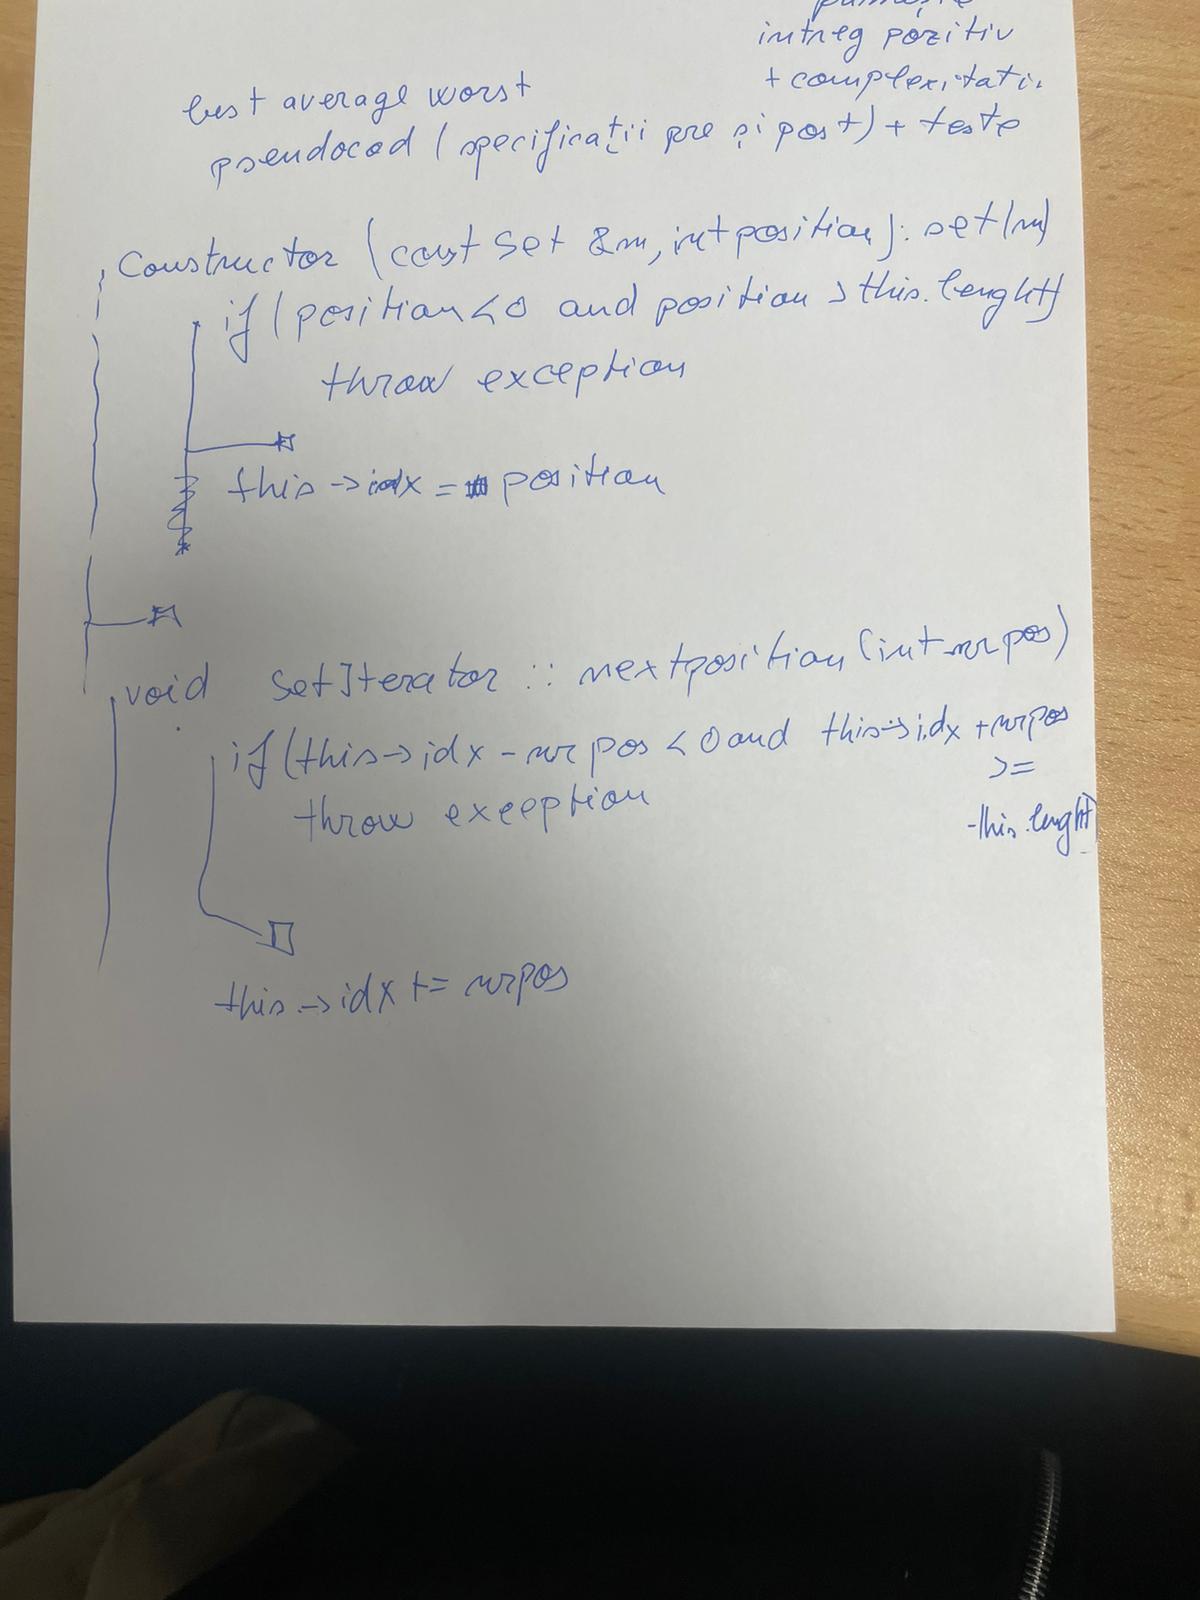 primește
intreg pozitiv
+ complexitati.
best average worst
pseudocod (specificații pre și post) + teste
Constructor (const Set &m, int position): set(m)
if (position<0 and position >this.lenght)
throw exception
this->idx = position
void SetIterator :: nextposition (int nrpos)
if (this->idx - nrpos <0 and this->idx + nrpos
>=
this.lenght)
throw exeeption
this->idx += nrpos